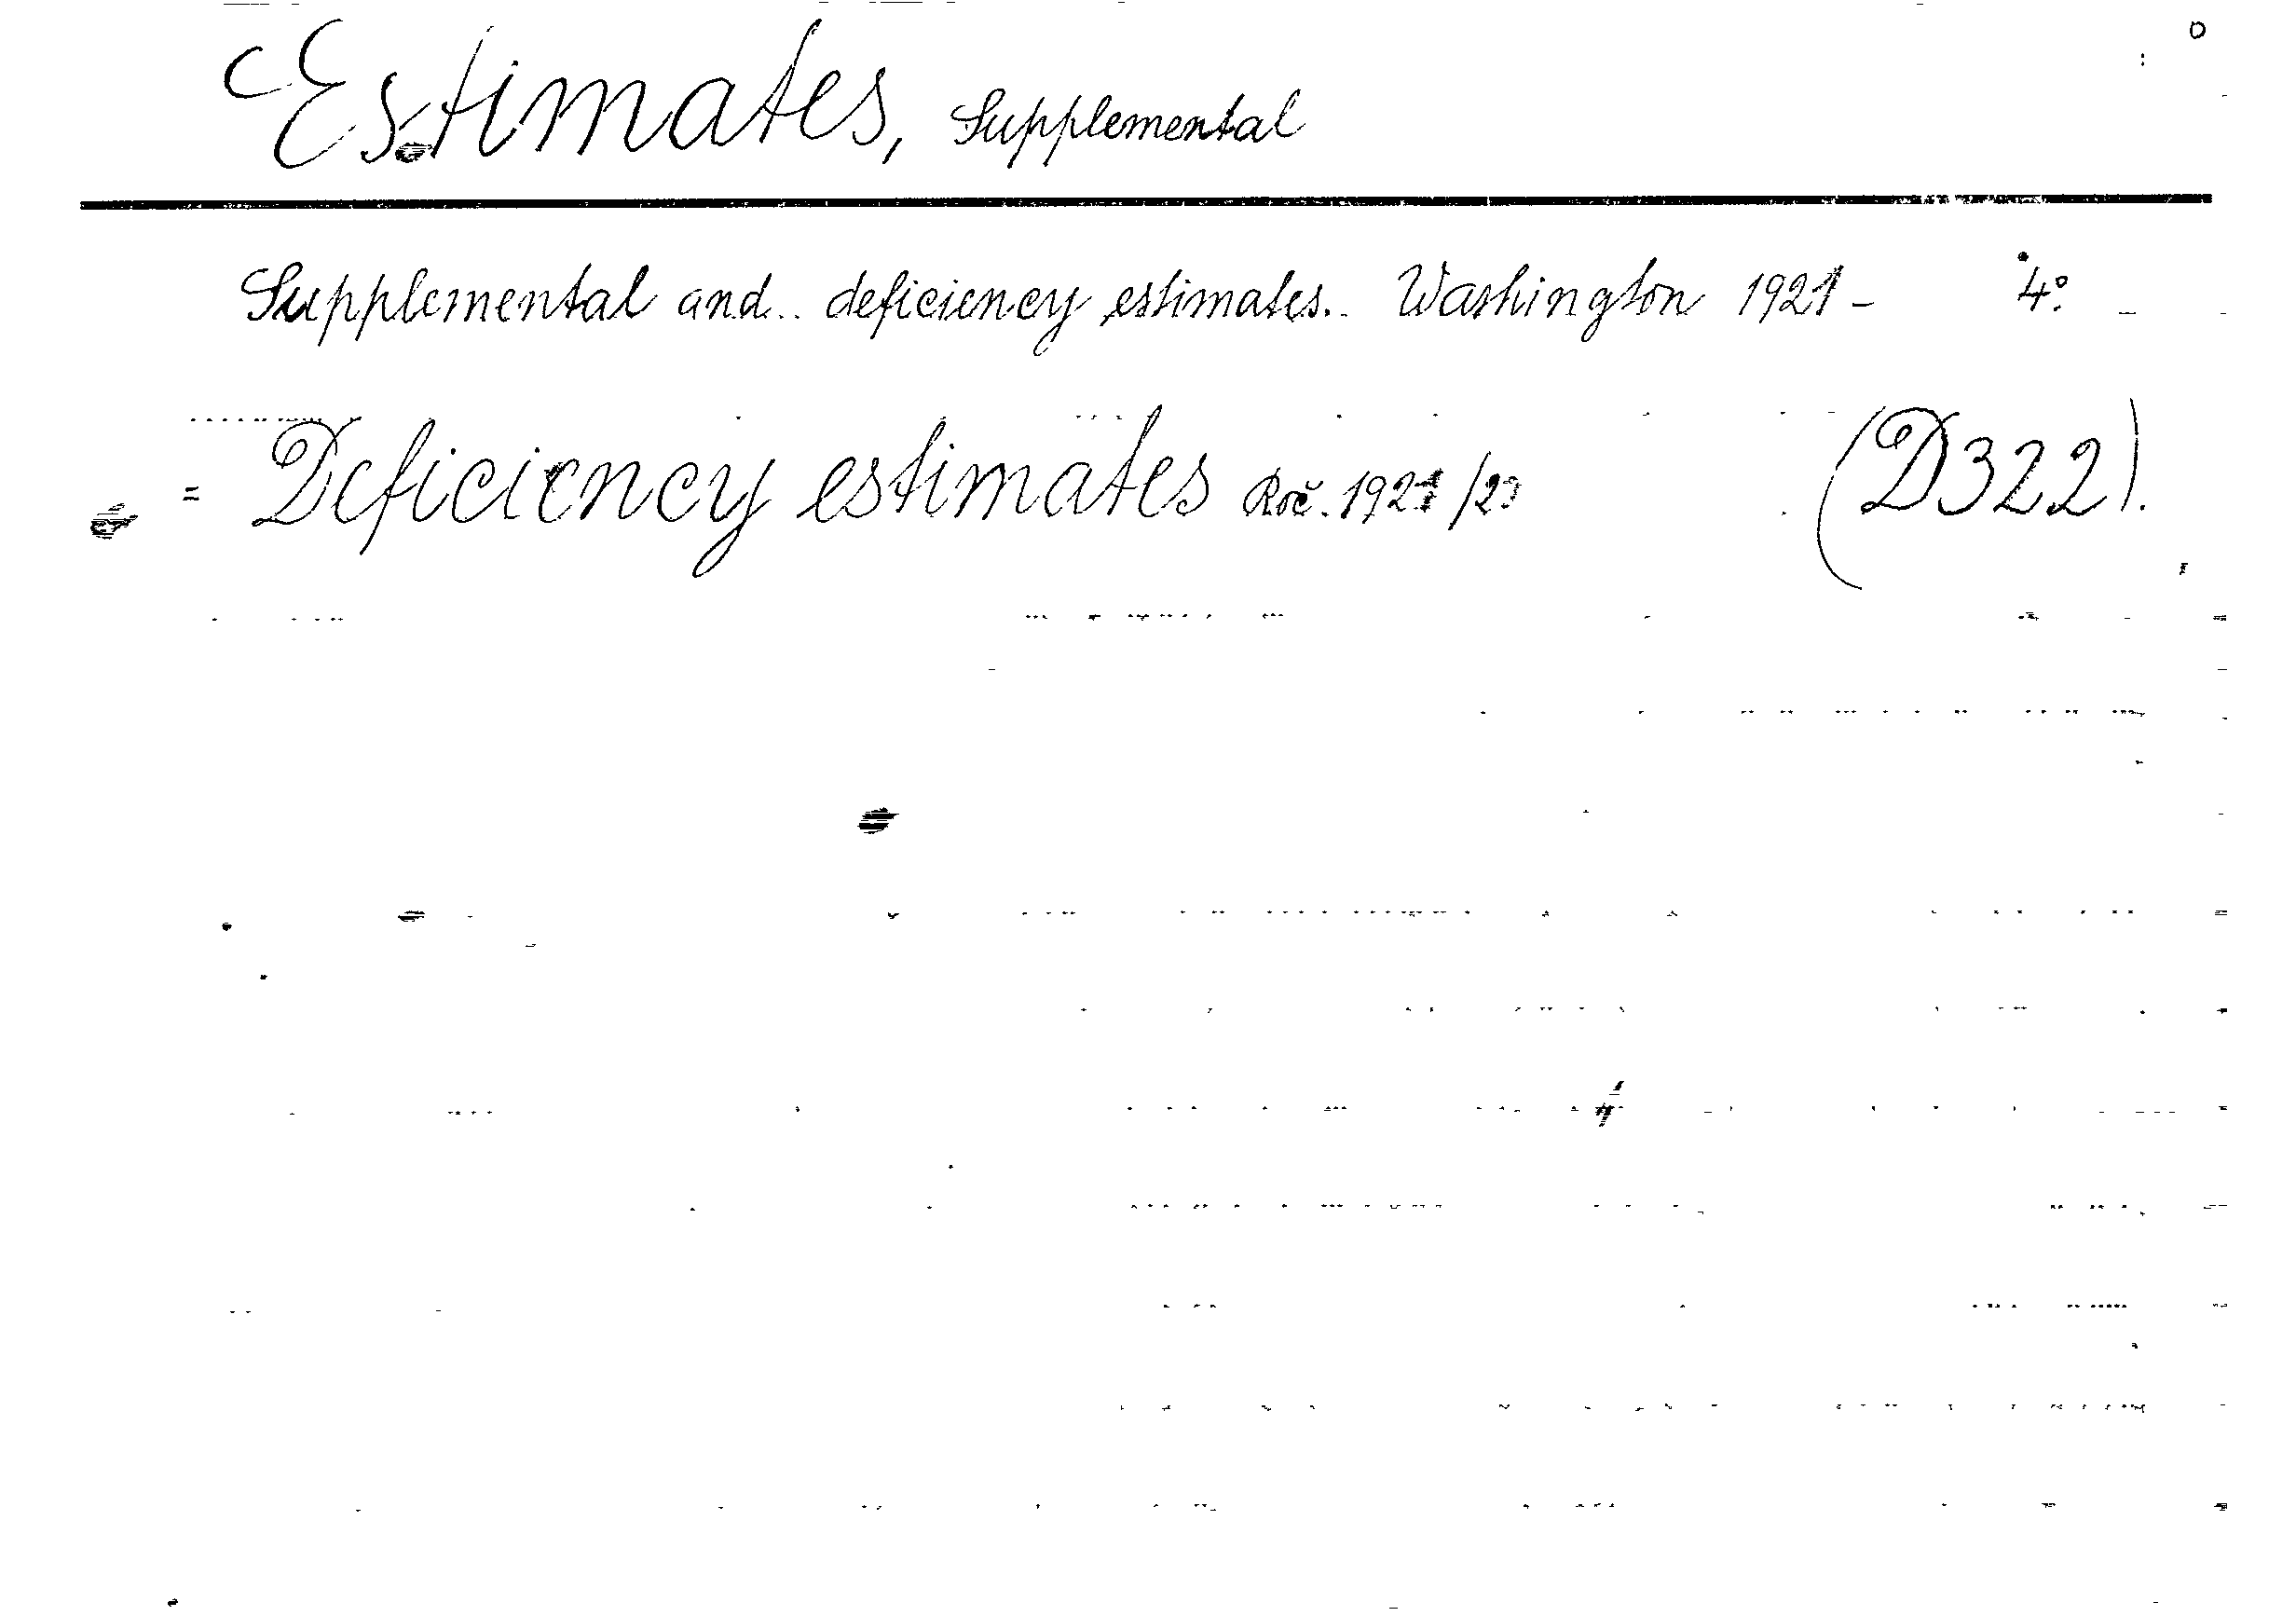 Estimates, Supplemental
Supplemental and.. deficiency estimates.. Washington 1921- 4°.
= Deficiency estimates Roč. 1921/23 (D322).